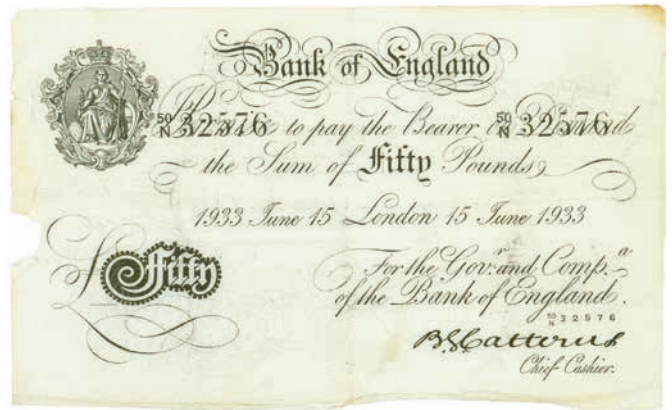 Bank of England
50/N 32576 to pay the Bearer on Demand 50/N 32576
the Sum of Fifty Pounds
1933 June 15 London 15 June 1933
£ Fifty
For the Govr. and Compa.
of the Bank of England.
50/N 32576
B.G. Catterns
Chief Cashier.